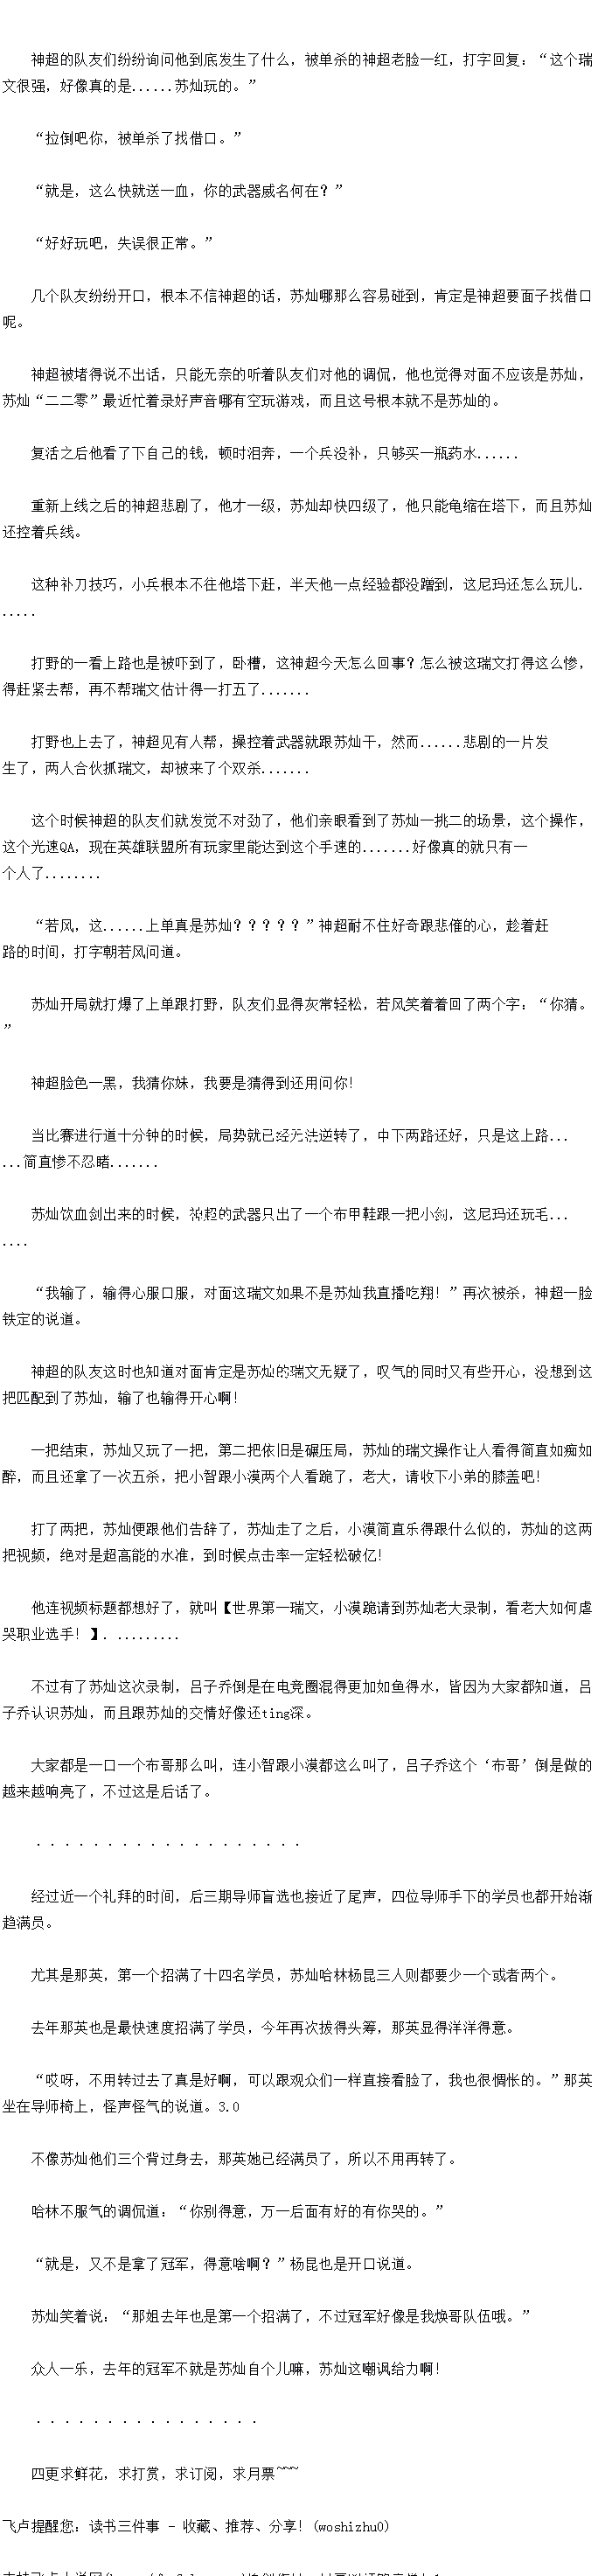 神超的队友们纷纷询问他到底发生了什么，被单杀的神超老脸一红，打字回复：“这个瑞
文很强，好像真的是......苏灿玩的。”
“拉倒吧你，被单杀了找借口。”
“就是，这么快就送一血，你的武器威名何在？”
“好好玩吧，失误很正常。”
几个队友纷纷开口，根本不信神超的话，苏灿哪那么容易碰到，肯定是神超要面子找借口
呢。
神超被堵得说不出话，只能无奈的听着队友们对他的调侃，他也觉得对面不应该是苏灿，
苏灿“二二零”最近忙着录好声音哪有空玩游戏，而且这号根本就不是苏灿的。
复活之后他看了下自己的钱，顿时泪奔，一个兵没补，只够买一瓶药水......
重新上线之后的神超悲剧了，他才一级，苏灿却快四级了，他只能龟缩在塔下，而且苏灿
还控着兵线。
这种补刀技巧，小兵根本不往他塔下赶，半天他一点经验都没蹭到，这尼玛还怎么玩儿.
.....
打野的一看上路也是被吓到了，卧槽，这神超今天怎么回事？怎么被这瑞文打得这么惨，
得赶紧去帮，再不帮瑞文估计得一打五了.......
打野也上去了，神超见有人帮，操控着武器就跟苏灿干，然而......悲剧的一片发
生了，两人合伙抓瑞文，却被来了个双杀.......
这个时候神超的队友们就发觉不对劲了，他们亲眼看到了苏灿一挑二的场景，这个操作，
这个光速QA，现在英雄联盟所有玩家里能达到这个手速的.......好像真的就只有一
个人了........
“若风，这......上单真是苏灿？？？？？”神超耐不住好奇跟悲催的心，趁着赶
路的时间，打字朝若风问道。
苏灿开局就打爆了上单跟打野，队友们显得灰常轻松，若风笑着着回了两个字：“你猜。
”
神超脸色一黑，我猜你妹，我要是猜得到还用问你！
当比赛进行道十分钟的时候，局势就已经无法逆转了，中下两路还好，只是这上路...
...简直惨不忍睹.......
苏灿饮血剑出来的时候，神超的武器只出了一个布甲鞋跟一把小剑，这尼玛还玩毛...
....
“我输了，输得心服口服，对面这瑞文如果不是苏灿我直播吃翔！”再次被杀，神超一脸
铁定的说道。
神超的队友这时也知道对面肯定是苏灿的瑞文无疑了，叹气的同时又有些开心，没想到这
把匹配到了苏灿，输了也输得开心啊！
一把结束，苏灿又玩了一把，第二把依旧是碾压局，苏灿的瑞文操作让人看得简直如痴如
醉，而且还拿了一次五杀，把小智跟小漠两个人看跪了，老大，请收下小弟的膝盖吧！
打了两把，苏灿便跟他们告辞了，苏灿走了之后，小漠简直乐得跟什么似的，苏灿的这两
把视频，绝对是超高能的水准，到时候点击率一定轻松破亿！
他连视频标题都想好了，就叫【世界第一瑞文，小漠跪请到苏灿老大录制，看老大如何虐
哭职业选手！】. .........
不过有了苏灿这次录制，吕子乔倒是在电竞圈混得更加如鱼得水，皆因为大家都知道，吕
子乔认识苏灿，而且跟苏灿的交情好像还ting深。
大家都是一口一个布哥那么叫，连小智跟小漠都这么叫了，吕子乔这个‘布哥’倒是做的
越来越响亮了，不过这是后话了。
...................
经过近一个礼拜的时间，后三期导师盲选也接近了尾声，四位导师手下的学员也都开始渐
趋满员。
尤其是那英，第一个招满了十四名学员，苏灿哈林杨昆三人则都要少一个或者两个。
去年那英也是最快速度招满了学员，今年再次拔得头筹，那英显得洋洋得意。
“哎呀，不用转过去了真是好啊，可以跟观众们一样直接看脸了，我也很惆怅的。”那英
坐在导师椅上，怪声怪气的说道。3.0
不像苏灿他们三个背过身去，那英她已经满员了，所以不用再转了。
哈林不服气的调侃道：“你别得意，万一后面有好的有你哭的。”
“就是，又不是拿了冠军，得意啥啊？”杨昆也是开口说道。
苏灿笑着说：“那姐去年也是第一个招满了，不过冠军好像是我焕哥队伍哦。”
众人一乐，去年的冠军不就是苏灿自个儿嘛，苏灿这嘲讽给力啊！
................
四更求鲜花，求打赏，求订阅，求月票~~~
飞卢提醒您：读书三件事 - 收藏、推荐、分享！(woshizhu0)